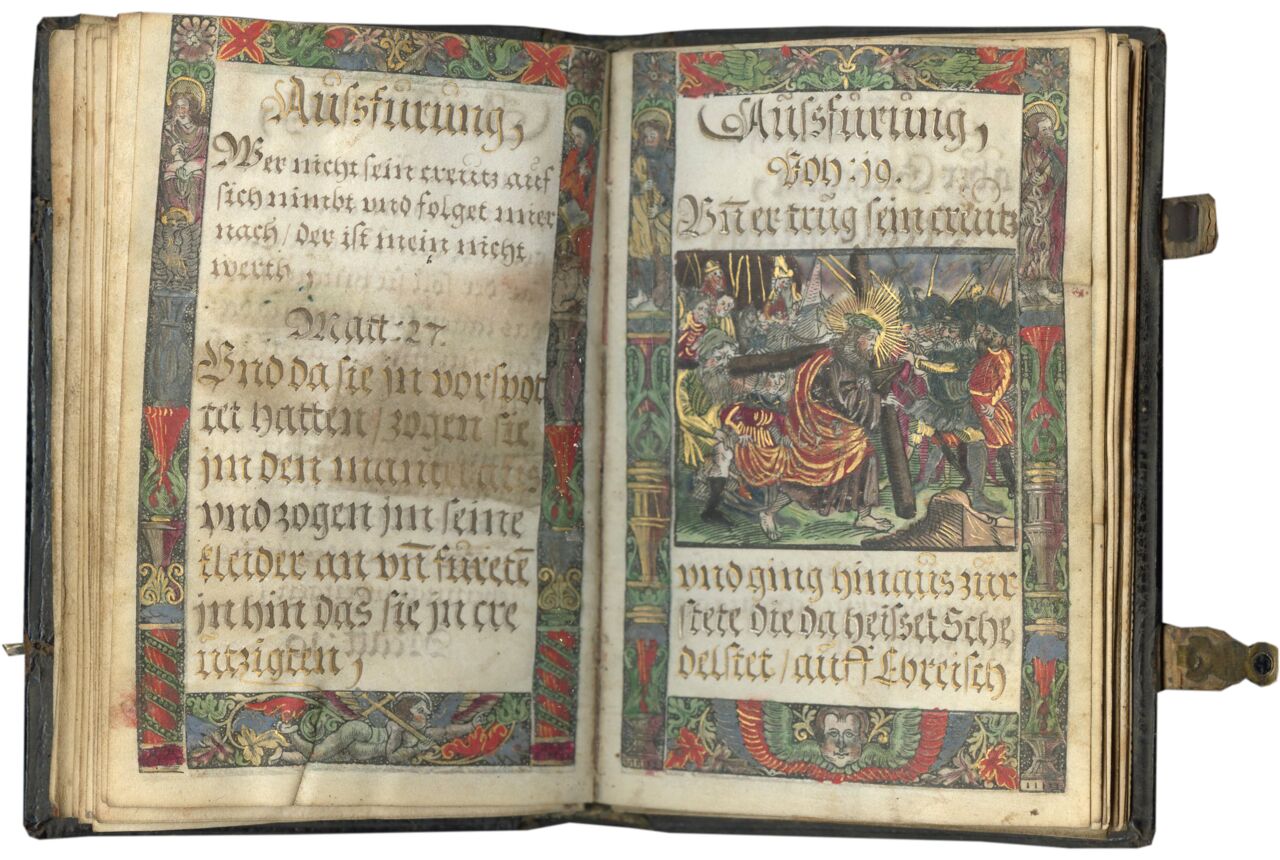 Aüssfürüng,
Wer nicht sein creütz aüf
sich nimbt vnd folget mier
nach / der ist mein nicht
werth,
Matt: 27.
Vnd da sie jn vorspot
tet hatten / zogen sie
jm den mantel aüs
vnd zogen jm seine
kleider an vn̄ füretē
jn hin das sie jn cre
ützigten,
Aüssfürüng,
Joh: 19.
Vn̄ er trüg sein creütz
vnd ging hinaüs zür
stete die da heisset Sche
delstet / aüff Ebreisch